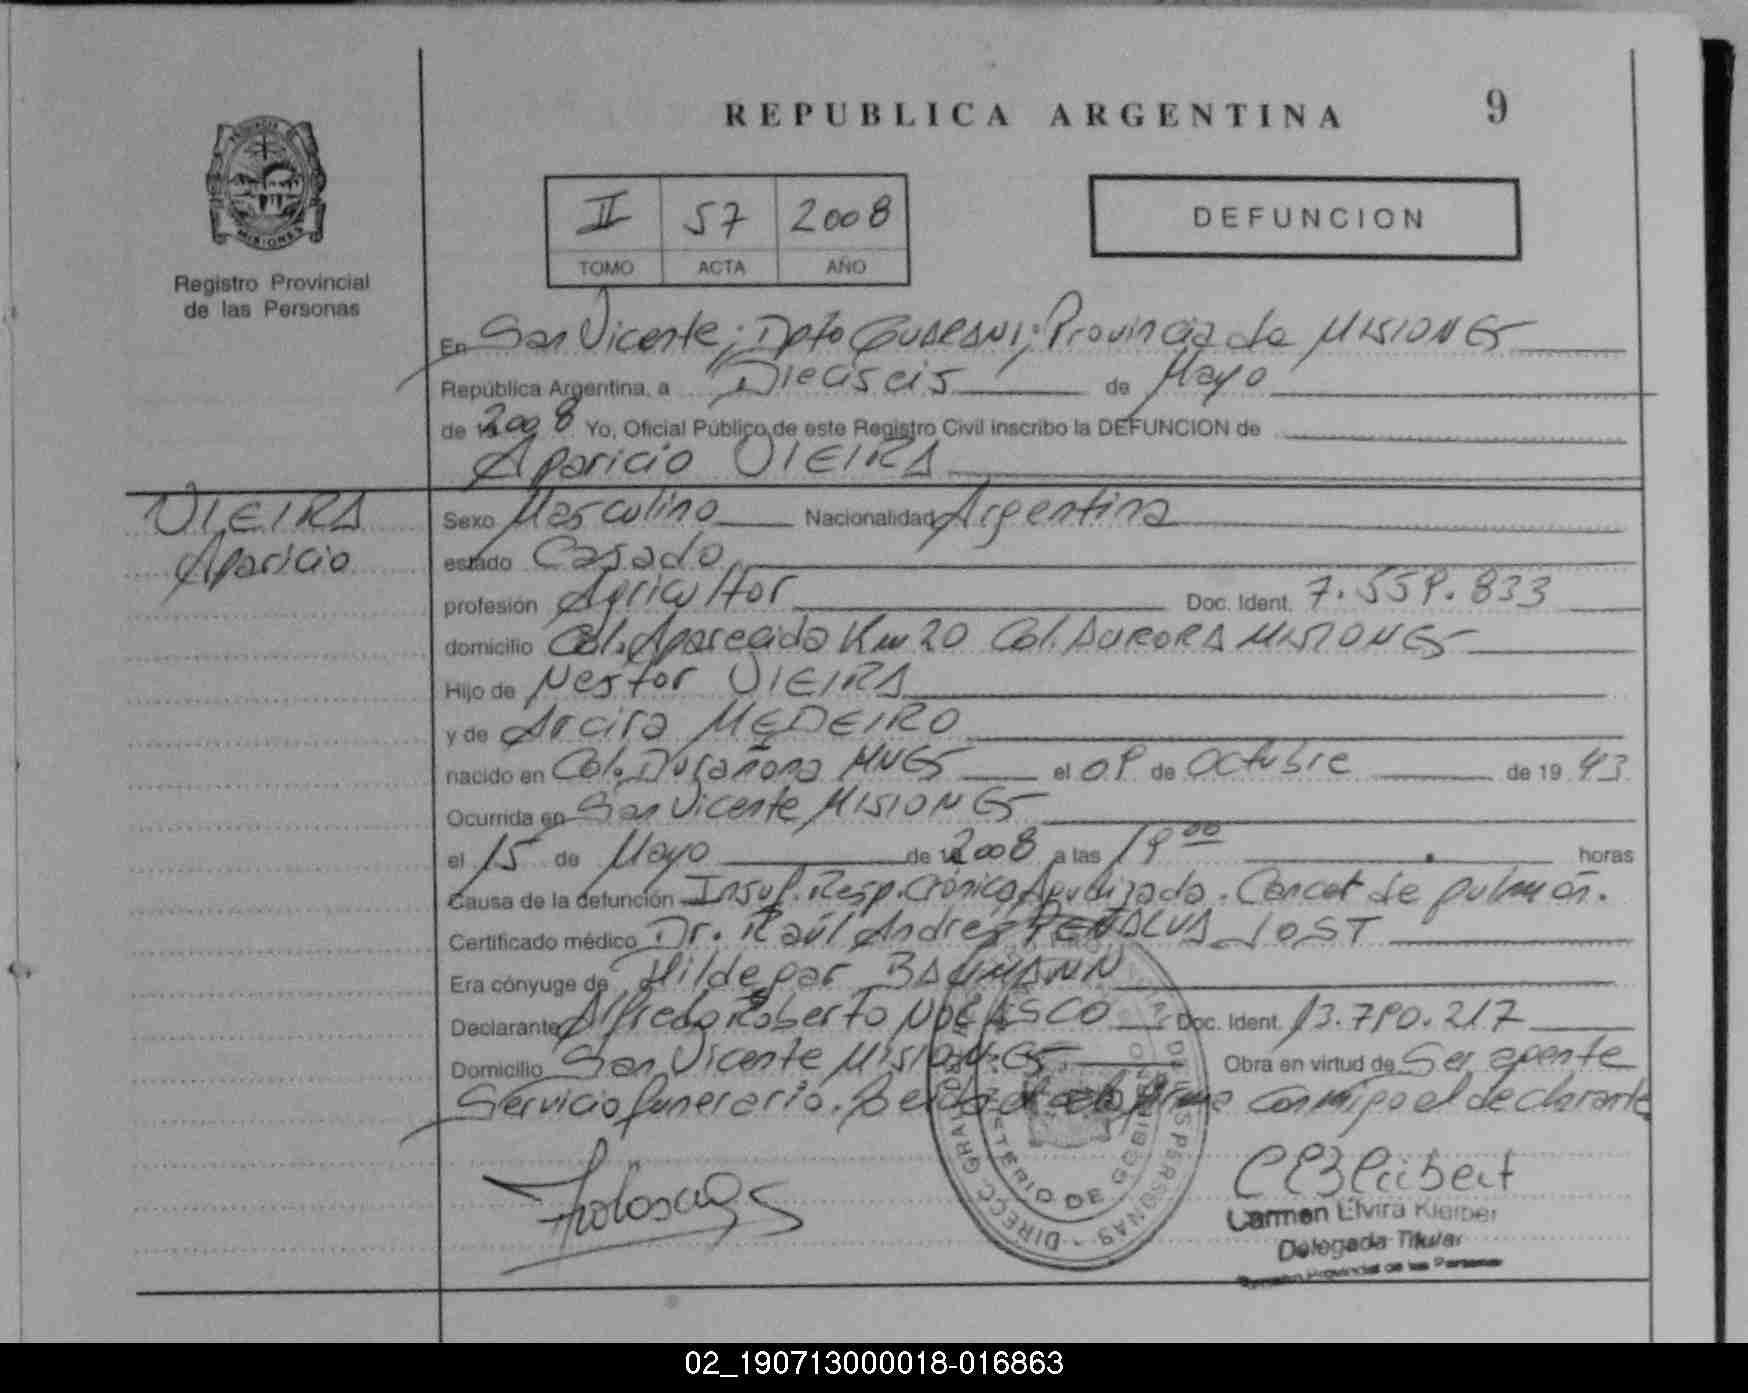 REPUBLICA ARGENTINA 9
PROVINCIA DE
MISIONES
Registro Provincial
de las Personas
II 57 2008
TOMO ACTA AÑO
DEFUNCION
En San Vicente; Dpto GUARANI; Provincia de MISIONES
República Argentina, a Dieciseis de Mayo
de 2008 Yo, Oficial Público de este Registro Civil inscribo la DEFUNCION de
Aparicio VIEIRA
VIEIRA
Aparicio
Sexo Masculino Nacionalidad Argentina
estado Casado
profesión Agricultor Doc. Ident. 7.559.833
domicilio Col. Aparecida Km 20 Col. AURORA MISIONES
Hijo de Nestor VIEIRA
y de Arcira MEDEIRO
nacido en Col. MNES el 09 de Octubre de 19 43
Ocurrida en San Vicente MISIONES
el 15 de Mayo de 2008 a las 19 00 horas
Causa de la defunción Insuf. Resp. Crónica Agudizada. Cancer de pulmón.
Certificado médico Dr. Raúl Andres PEÑALVA JOST
Era cónyuge de Hildegar BAUMANN
Declarante Alfredo Roberto NOLASCO Doc. Ident. 13.790.217
Domicilio San Vicente MISIONES Obra en virtud de Ser agente
Servicio funerario. Leida el acta firma conmigo el declarante
DIRECC GRAL DE LAS PERSONAS
MINISTERIO DE GOBIERNO
Carmen Elvira Kleiber
Delegada Titular
Registro Provincial de las Personas
02_190713000018-016863